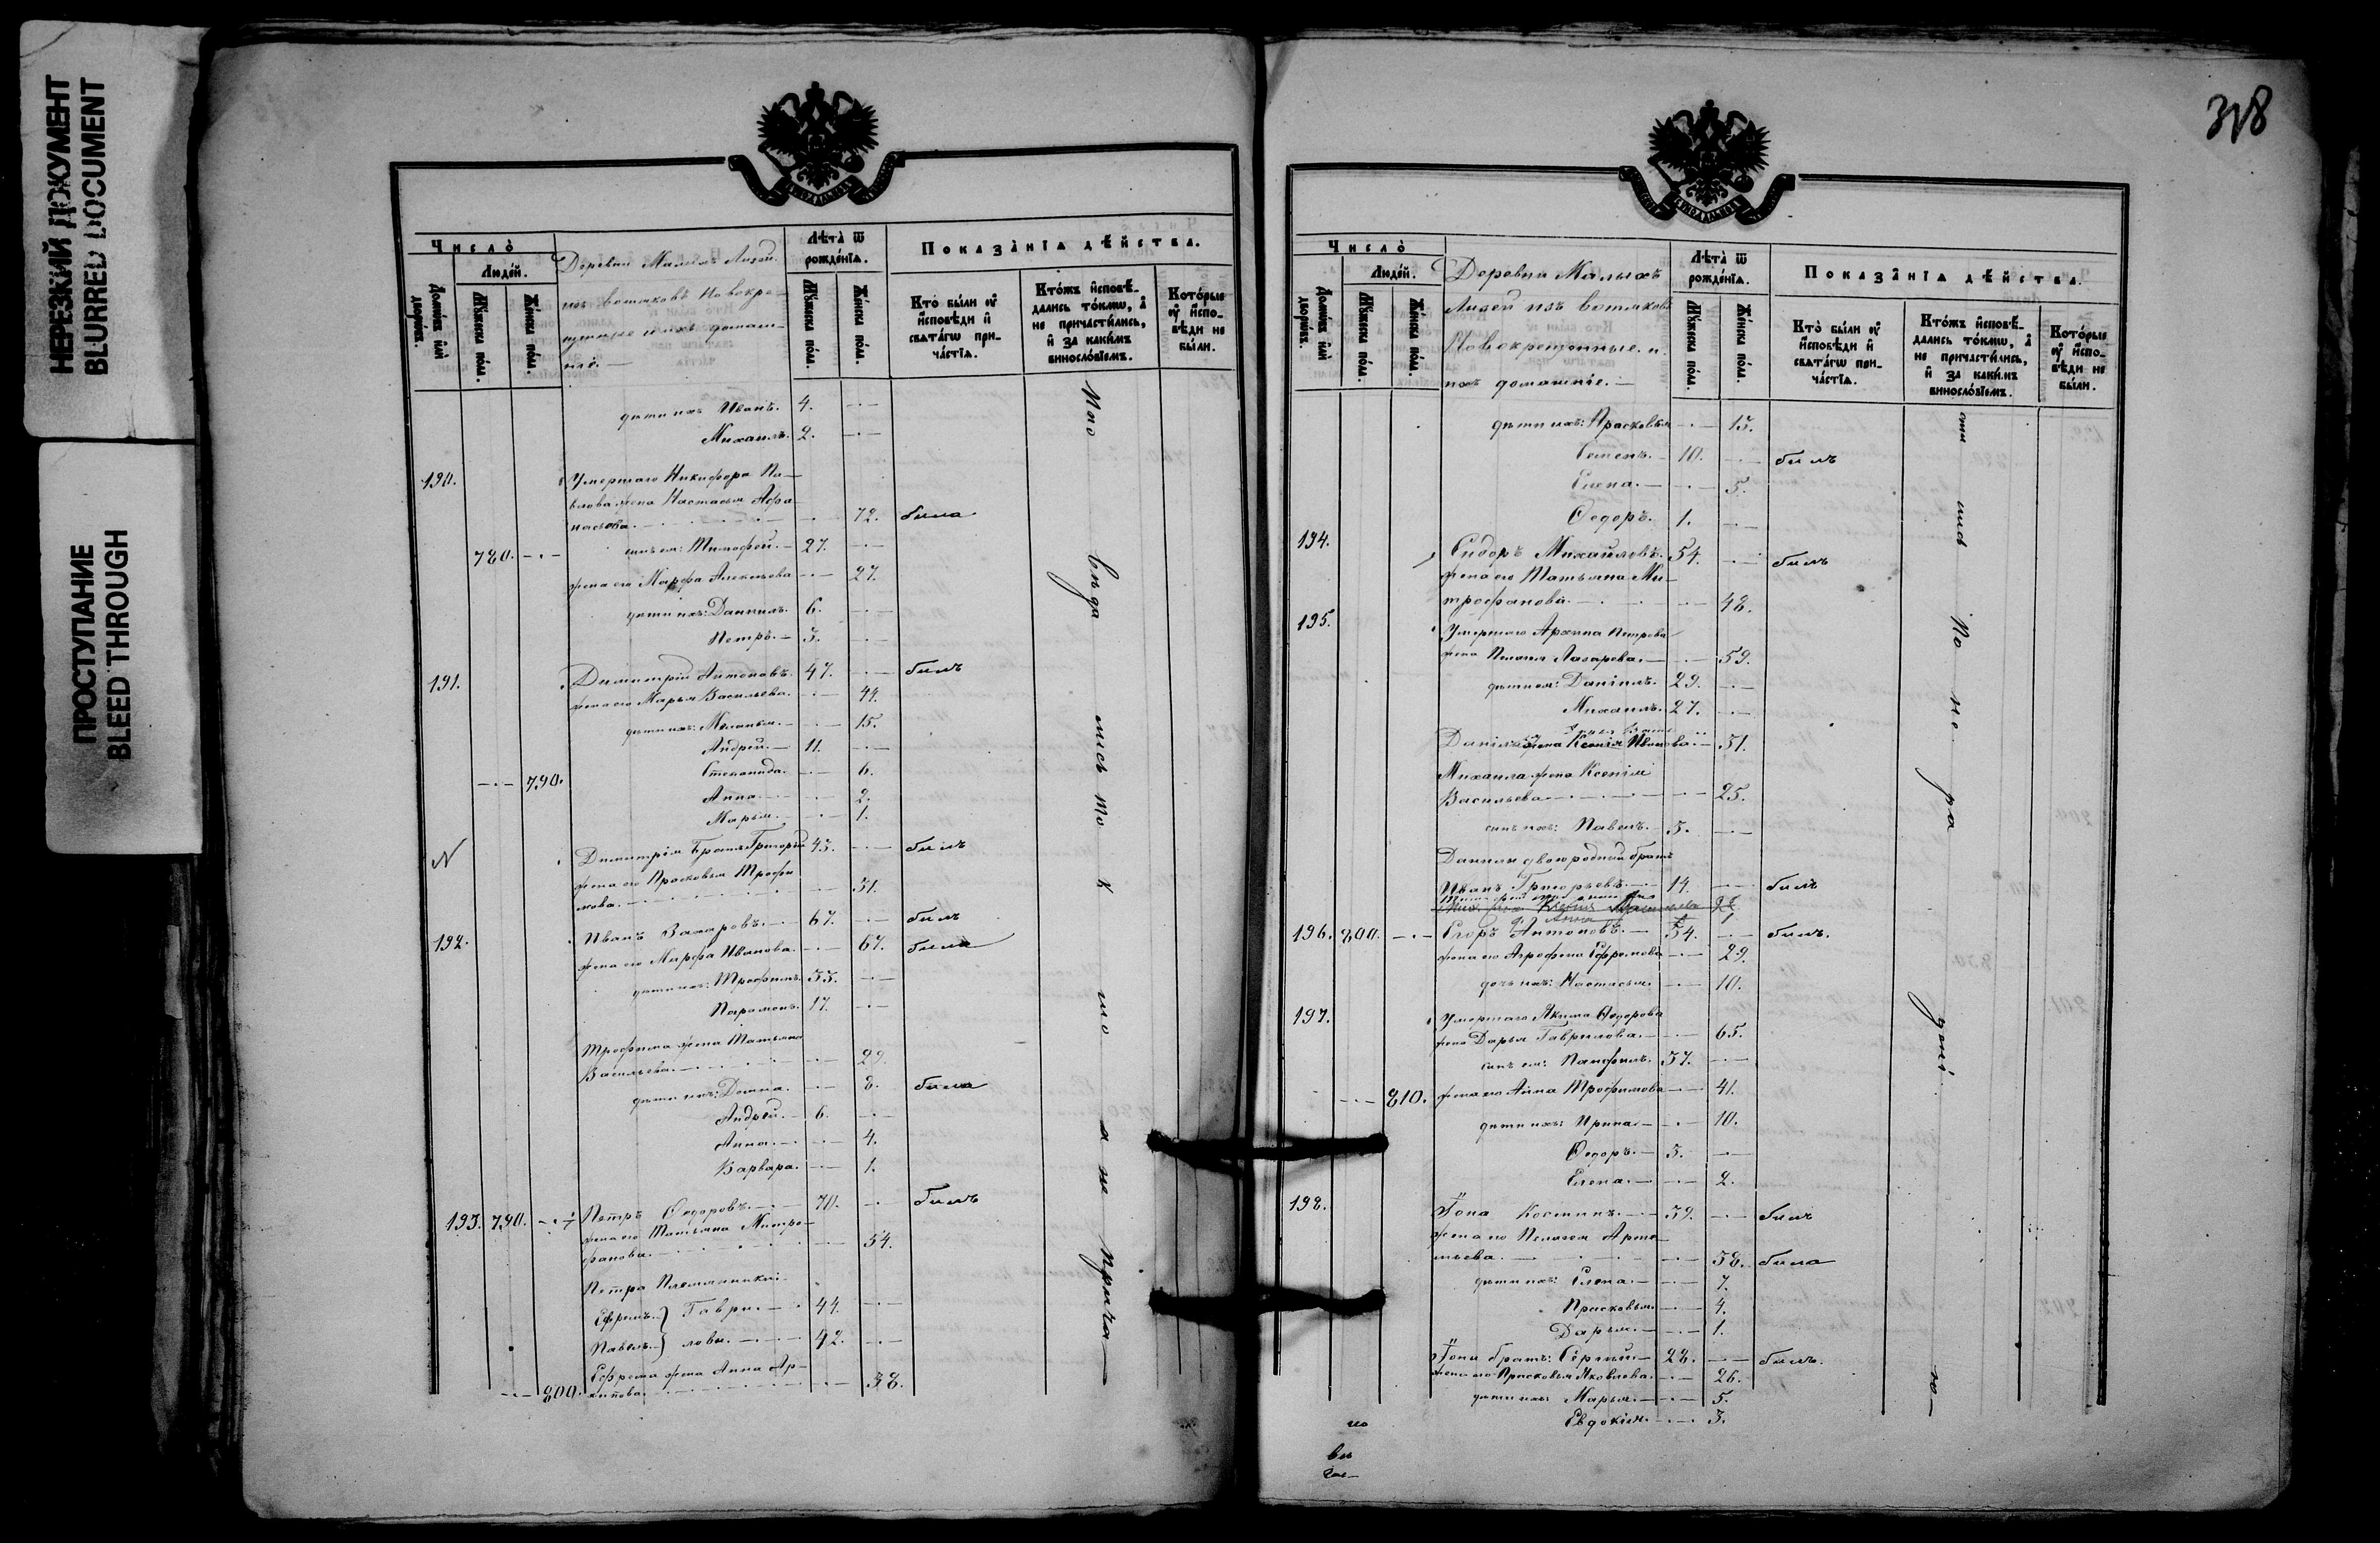 НЕРЕЗКИЙ ДОКУМЕНТ
BLURRED DOCUMENT
ПРОСТУПАНИЕ
BLEED THROUGH
Число̀
Людей.
Домѡвъ или дворѡвъ.
Мꙋжеска пола.
Женска пола.
Деревни Малыхъ Лызей.
изъ вотяковъ Новокре-
щенные и ихъ домаш-
ніе.
Лѣта ѿ рожденїѧ.
Мꙋжеска пола.
Женска пола.
Показанїѧ дѣйства.
Кто были ѹ исповѣди и свѧтагѡ причастїѧ.
Ктожъ исповѣдались токмѡ, а не причастились, и за какимъ винословїемъ.
Которые ѹ исповѣди не были.
дѣти ихъ Иванъ. 4.
Михаилъ. 2.
190. Умершаго Никифора Па-
влова жена Настасья Афа-
насьева. 72. была
780. сынъ ея: Тимофей. 27.
жена его Марфа Алексѣева 27.
дѣти ихъ: Даниилъ. 6.
Петръ. 3.
191. Димитрій Антоновъ. 47. былъ
жена его Марья Васильева. 44.
дѣти ихъ: Меланья. 15.
Андрей. 11.
790. Степанида. 6.
Анна. 2.
Марья. 1.
N Димитрія братъ Григорій 43. былъ
жена его Прасковья Трофи
мова. 31.
192. Иванъ Захаровъ. 67. былъ
жена его Марфа Иванова. 67. была
дѣти ихъ: Трофимъ. 33.
Парамонъ. 17.
Трофима жена Татьяна
Васильева. 29.
дѣти ихъ: Домна. 8. была
Андрей. 6.
Анна. 4.
Варвара. 1.
193. 790. Петръ Ѳедоровъ. 70. былъ
жена его Татьяна Митро-
фанова. 54.
Петра племянники
Ефремъ. } Гаври- 44.
Павелъ. } ловы. 42.
800. Ефрема жена Анна Ар-
хипова. 38.
318
Число̀
Людей.
Домѡвъ или дворѡвъ.
Мꙋжеска пола.
Женска пола.
Деревни Малыхъ
Лызей изъ вотяковъ
Новокрещенные и
ихъ домашніе.
Лѣта ѿ рожденїѧ.
Мꙋжеска пола.
Женска пола.
Показанїѧ дѣйства.
Кто были ѹ исповѣди и свѧтагѡ причастїѧ.
Ктожъ исповѣдались токмѡ, а не причастились, и за какимъ винословїемъ.
Которые ѹ исповѣди не были.
дѣти ихъ: Прасковья 15.
Семенъ. 10. былъ
Елена. 5.
Ѳедоръ. 1.
194. Сидоръ Михайловъ. 54. былъ
жена его Татьяна Ми-
трофанова. 48.
195. Умершаго Архипа Петрова
жена Пелагея Лазарева. 59.
дѣти ея: Даніилъ. 29.
Михаилъ. 27.
Даніила жена Ксенія Иванова. 31.
Михаила жена Ксенія
Васильева 25.
сынъ ихъ: Павелъ. 3.
Даніила двоюродный братъ
Иванъ Григорьевъ. 14. былъ
196. 800. Егоръ Антоновъ. 34. былъ.
жена его Агрофена Ефремова 29.
дочь ихъ: Настасья. 10.
197. Умершаго Якима Ѳедорова
жена Дарья Гаврилова. 65.
сынъ ея: Панфилъ. 37.
810. жена его Анна Трофимова 41.
дѣти ихъ: Ирина 10.
Ѳедоръ. 3.
Елена. 2.
198. Іона Костинъ. 39. былъ
жена его Пелагея Арте-
мьева. 38. была
дѣти ихъ: Елена. 7.
Прасковья. 4.
Дарья. 1.
Іоны братъ: Сергій 28. былъ.
жена его Прасковья Яковлева. 26.
дѣти ихъ: Марья. 5.
Евдокія. 3.